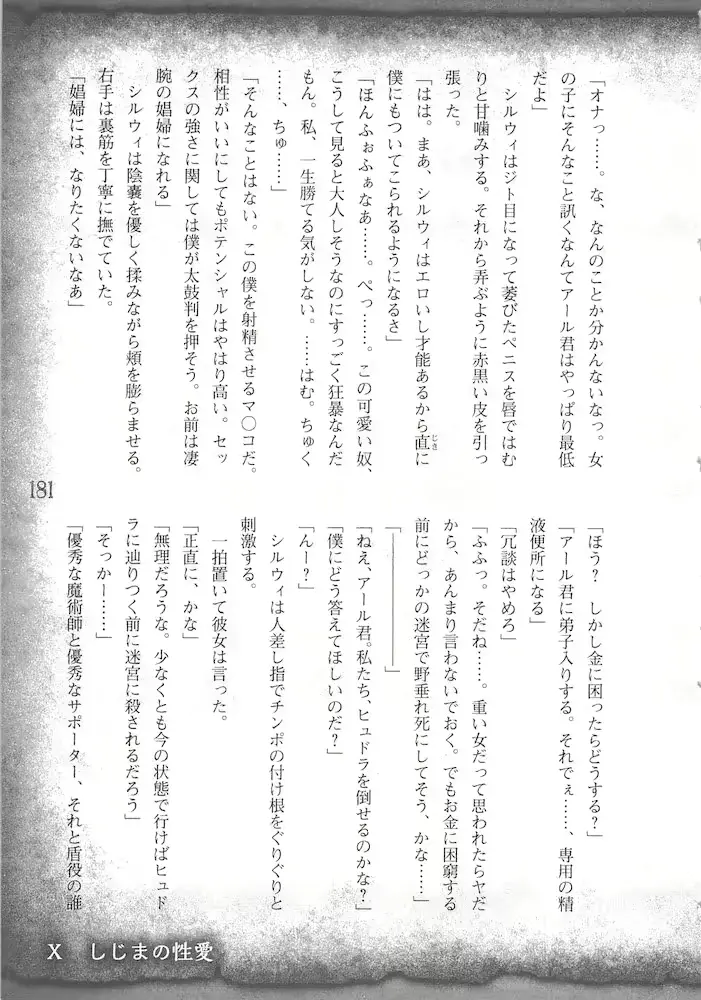 「オナっ……。な、なんのことか分かんないなっ。女
の子にそんなこと訊くなんてアール君はやっぱり最低
だよ」
　シルウィはジト目になって萎びたペニスを唇ではむ
りと甘噛みする。それから弄ぶように赤黒い皮を引っ
張った。
「はは。まあ、シルウィはエロいし才能あるから直に
じき
僕にもついてこられるようになるさ」
「ほんふぉふぁなあ……。ぺっ……。この可愛い奴、
こうして見ると大人しそうなのにすっごく狂暴なんだ
もん。私、一生勝てる気がしない。……はむ。ちゅく
……、ちゅ……」
「そんなことはない。この僕を射精させるマ〇コだ。
相性がいいにしてもポテンシャルはやはり高い。セッ
クスの強さに関しては僕が太鼓判を押そう。お前は凄
腕の娼婦になれる」
　シルウィは陰嚢を優しく揉みながら頬を膨らませる。
右手は裏筋を丁寧に撫でていた。
「娼婦には、なりたくないなあ」
「ほう？　しかし金に困ったらどうする？」
「アール君に弟子入りする。それでぇ……、専用の精
液便所になる」
「冗談はやめろ」
「ふふっ。そだね……。重い女だって思われたらヤだ
から、あんまり言わないでおく。でもお金に困窮する
前にどっかの迷宮で野垂れ死にしてそう、かな……」
「――――――」
「ねえ、アール君。私たち、ヒュドラを倒せるのかな？」
「僕にどう答えてほしいのだ？」
「んー？」
　シルウィは人差し指でチンポの付け根をぐりぐりと
刺激する。
　一拍置いて彼女は言った。
「正直に、かな」
「無理だろうな。少なくとも今の状態で行けばヒュド
ラに辿りつく前に迷宮に殺されるだろう」
「そっかー……」
「優秀な魔術師と優秀なサポーター、それと盾役の誰
181
X　しじまの性愛